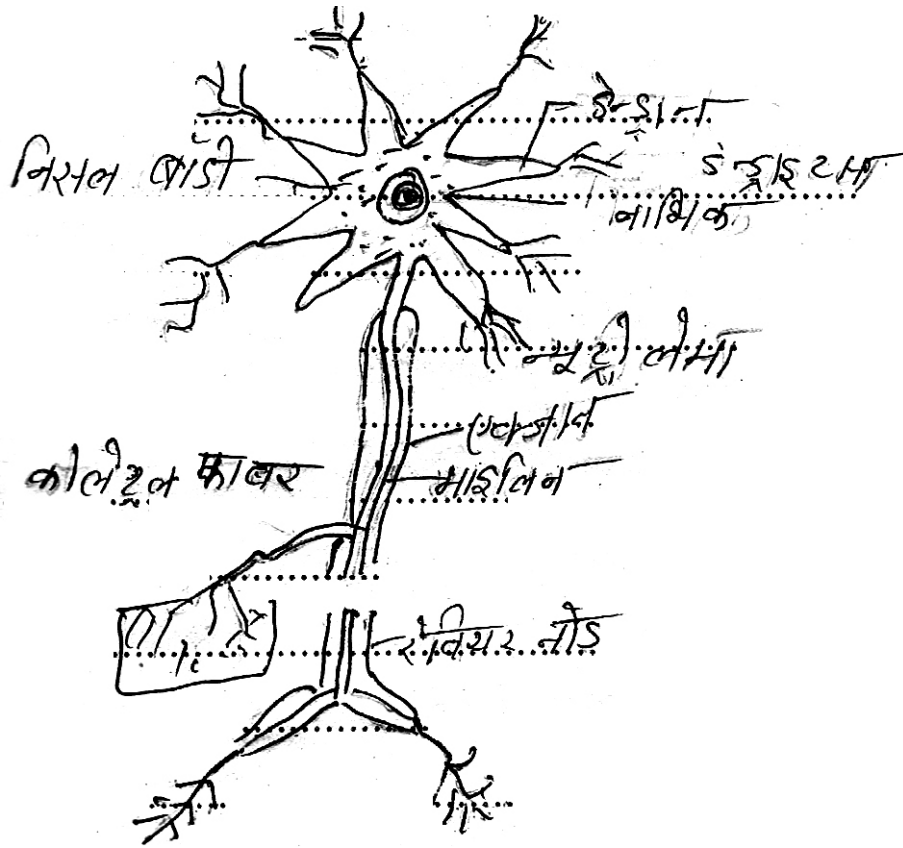 डेन्ड्रान
निसल बॉडी
डेन्ड्राइटस
नाभिक
न्यूट्रीलेमा
एक्जान
कोलेट्रल फाबर
माइलिन
रेनवियर नोड